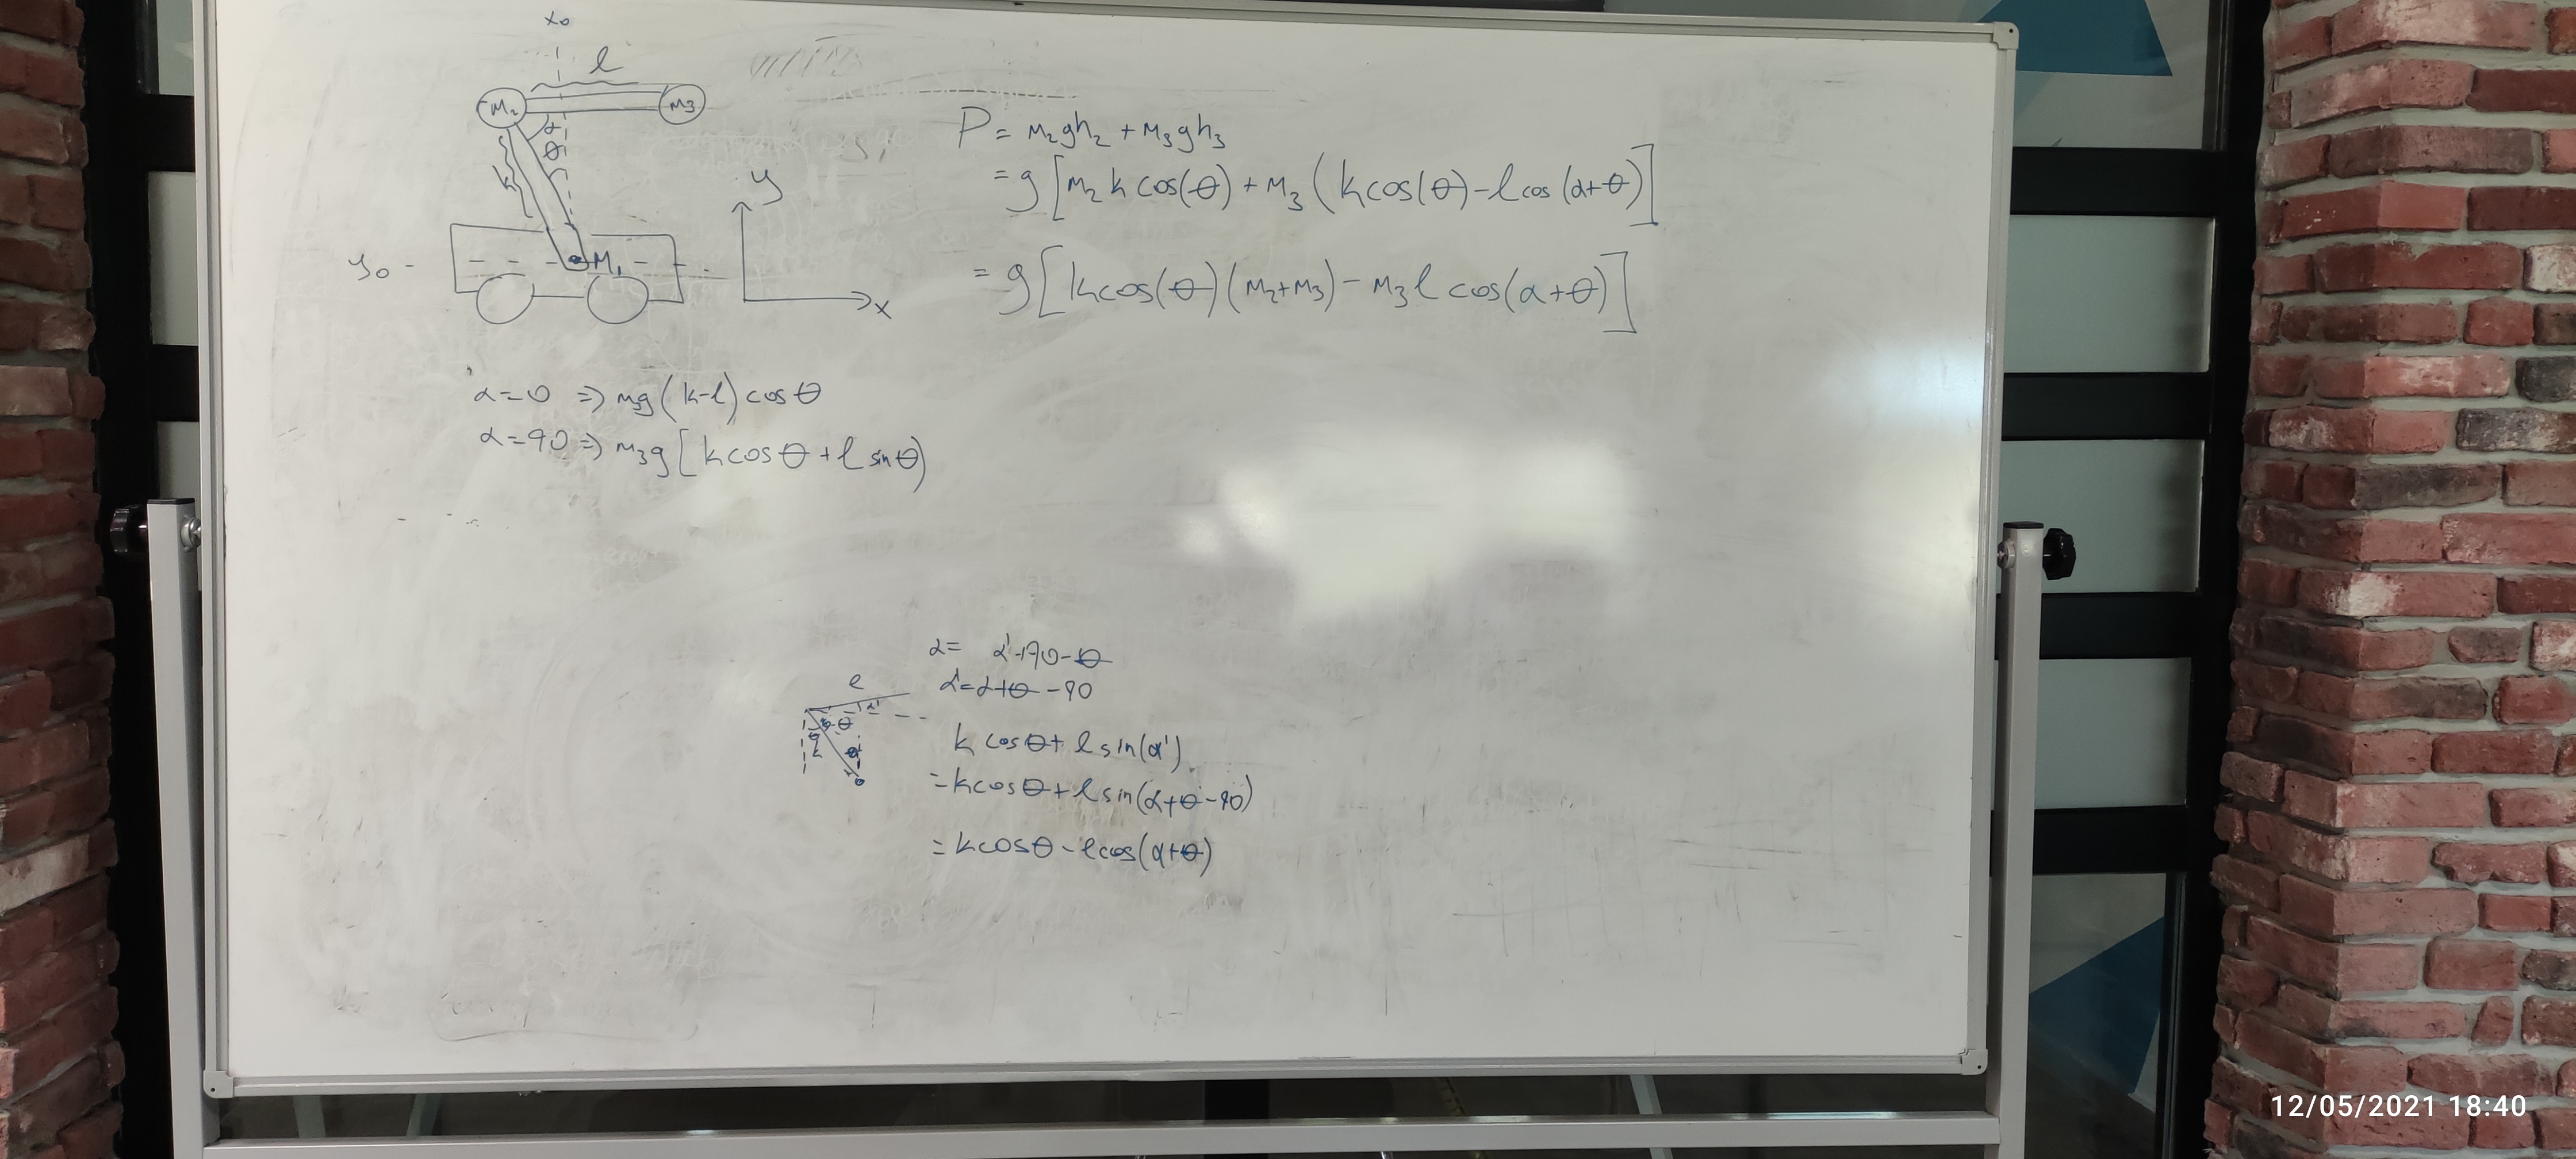 x₀
l
M₂
M3
α
θ
k
y₀
M₁
y
x
P = M₂gh₂ + M₃gh₃
= g[M₂ k cos(θ) + M₃ (k cos(θ) - l cos (α+θ)]
= g[k cos(θ)(M₂+M₃) - M₃ l cos(α+θ)]
α=0 => m₃g(k-l) cos θ
α=90 => m₃g[k cos θ + l sin θ)
α = α'+90-θ
α' = α+θ-90
l
α'
90-θ
θ
θ
k
k cos θ + l sin(α')
= k cos θ + l sin(α+θ-90)
= k cos θ - l cos(α+θ)
12/05/2021 18:40